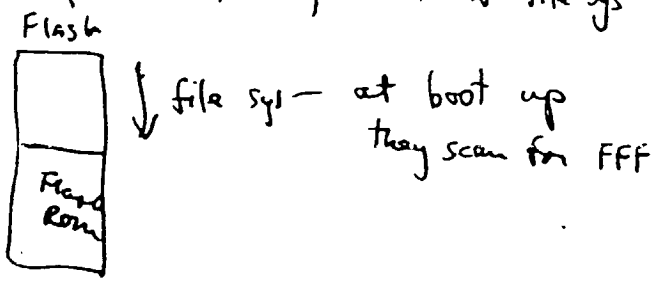 file sys
Flash
file sys — at boot up
they scan for FFF
Rom